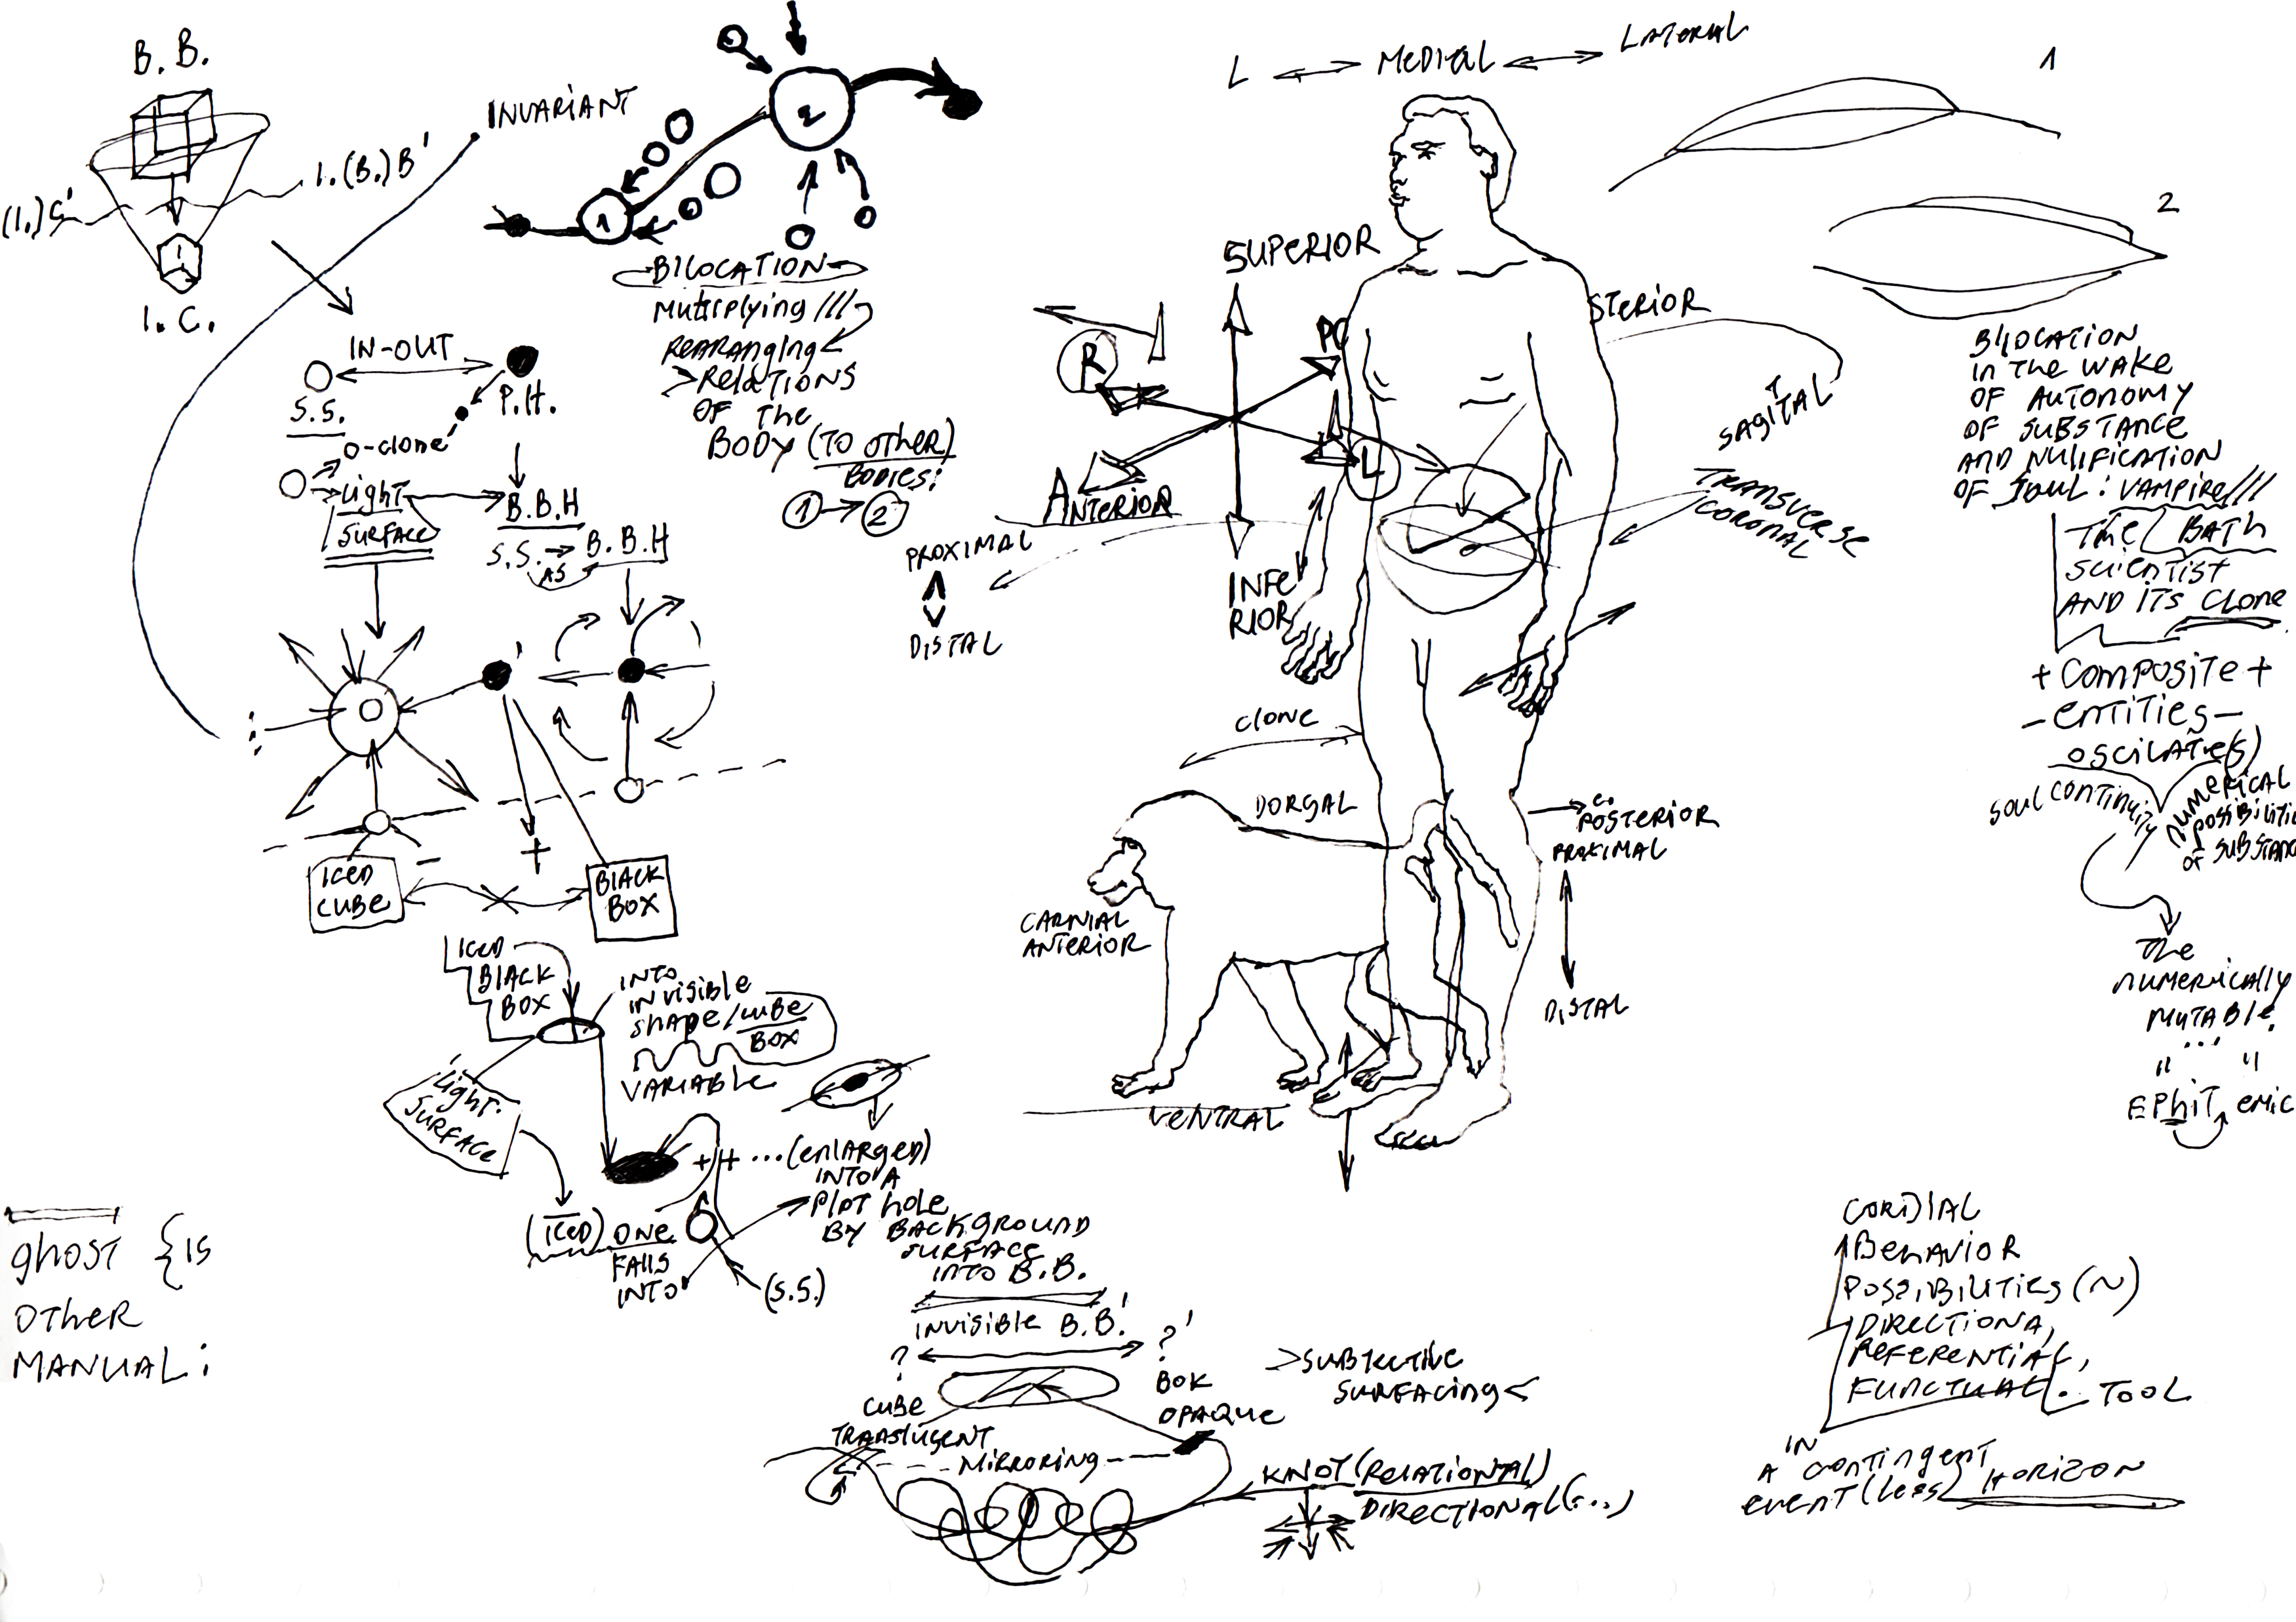 B. B.
I.(B.)B'
I. C.
INVARIANT
2
1
BILOCATION
REARANGING
RELATIONS
OF THE
BODY (TO OTHER)
BODIES:
1 → 2
IN-OUT
S.S.
P.H.
O-clone
Light
SURFACE
B.B.H
S.S. → B.B.H
AS
+
-
ICED
CUBE
BLACK
BOX
ICED
BLACK
BOX
INTO
INVISIBLE
SHAPE/CUBE
BOX
VARIABLE
Light
SURFACE
(ICED) ONE
FALLS
INTO
(S.S.)
++ ...(ENLARGED)
INTO A
PLOT hole
BY BACKGROUND
SURFACE
INTO B.B.
INVISIBLE B.B.'
?
?'
CUBE
BOX
OPAQUE
MIRRORING
SURFACING
KNOT (RELATIONAL)
DIRECTIONAL (...)
ghost {is
OTHER
MANUAL:
L ↔ MEDIAL ↔ LATERAL
SUPERIOR
R
L
PO
STERIOR
ANTERIOR
INFE
RIOR
PROXIMAL
DISTAL
SAGITAL
TRANSVERSE
CORONAL
clone
DORSAL
CARNIAL
ANTERIOR
VENTRAL
POSTERIOR
PROXIMAL
DISTAL
1
2
BILOCATION
IN THE WAKE
OF AUTONOMY
OF SUBSTANCE
AND NULIFICATION
OF SOUL: VAMPIRE///
THE BATH
SCIENTIST
AND ITS CLONE
+ COMPOSITE +
- ENTITIES -
OSCILATE(S)
SOUL CONTINUITY
NUMERICAL
POSSIBILITIE
OF SUBSTANC
The
NUMERICALLY
MUTABLE
" ... "
EPhiT EMIC
CORDIAL
BEHAVIOR
POSSIBILITIES (N)
DIRECTIONAL,
REFERENTIAL,
TOOL
IN
A CONTINGENT
EVENT (LESS) HORIZON